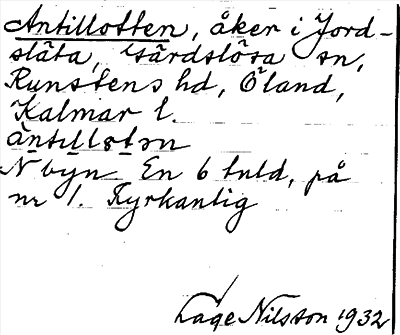 Antillotten, åker i Jord-
släta, Gärdslösa sn,
Runstens hd, Öland,
Kalmar l.
antillotən
N byn. En 6 tuld, på
nr 1. Fyrkantig
Lage Nilsson 1932